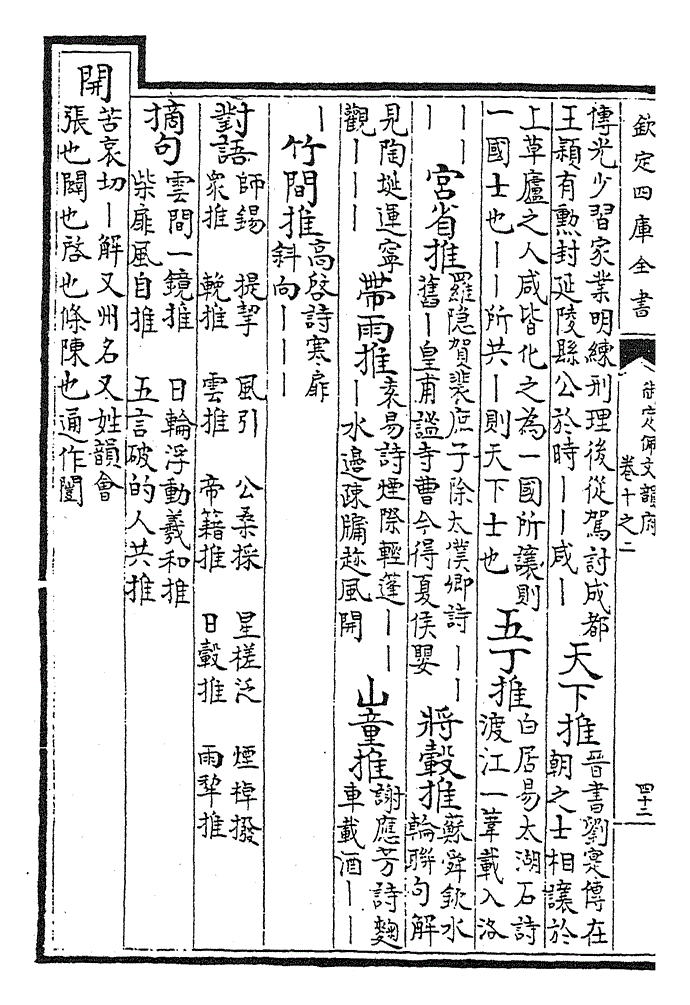 欽定四庫全書
御定佩文韻府
卷十之二
四十二
傳光少習家業明練刑理後從駕討成都
王穎有勲封延陵縣公於時丨丨咸丨
天下推
晉書劉寔傳在
朝之士相讓於
上草廬之人咸皆化之為一國所讓則
一國士也丨丨所共丨則天下士也
五丁推
白居易太湖石詩
渡江一葦載入洛
丨丨
丨
宮省推
羅隱賀裴庶子除太僕卿詩丨丨
舊丨皇甫謐寺曹今得夏侯嬰
將轂推
蘇舜欽水
輪聯句解
見陶埏運寧
觀丨丨丨
帶雨推
袁易詩煙際輕蓬丨丨
丨水邊疎牖趂風開
山童推
謝應芳詩麴
車載酒丨丨
丨
竹間推
高啓詩寒扉
斜向丨丨丨
對語
師錫 提挈 風引 公桑採 星槎泛 煙棹撥
衆推 輓推 雲推 帝籍推 日轂推 雨犂推
摘句
雲間一鏡推 日輪浮動羲和推
柴扉風自推 五言破的人共推
開
苦哀切丨解又州名又姓韻會
張也闢也啓也條陳也通作闓